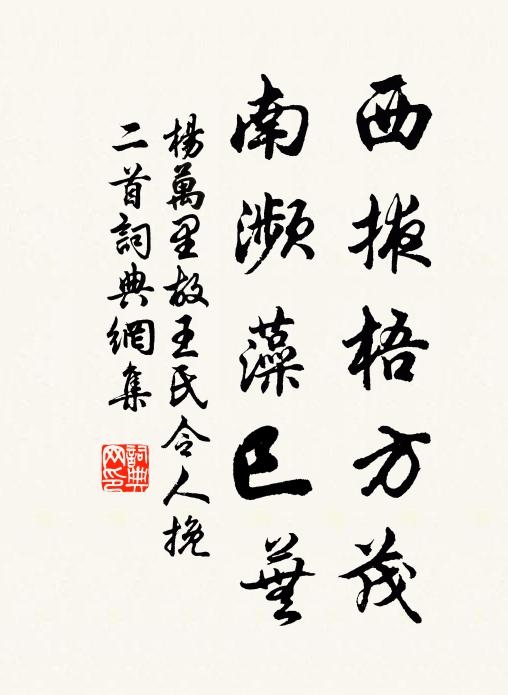 西掖梧方茂
南濒藻已蕪
楊萬里故王氏令人挽
二首詞典網集
詞典网印